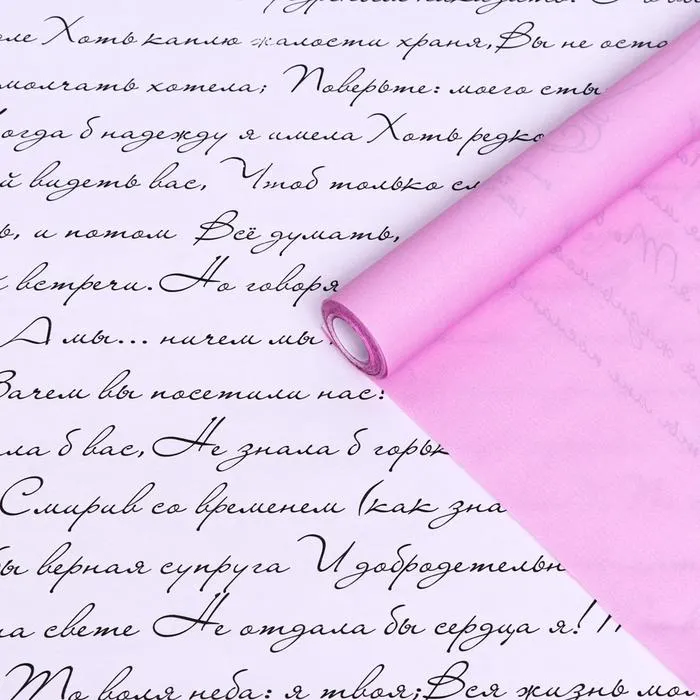 оле Хоть каплю жалости храня, Вы не оста
молчать хотела; Поверьте: моего сты
огда б надежду я имела Хоть редко
й видеть вас, Чтоб только сл
ь, и потом Всё думать,
й встречи. Но говоря
А мы... ничем мы
Зачем вы посетили нас:
ла б вас, Не знала б горьк
Смирив со временем (как зна
бы верная супруга И добродетельн
на свете Не отдала бы сердца я!
То воля неба: я твоя; Вся жизнь мо